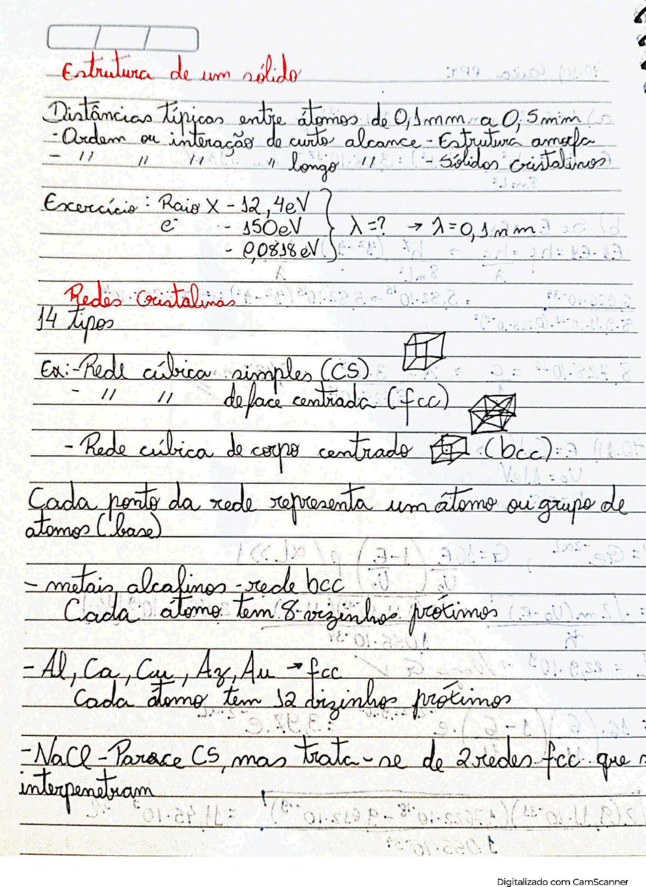 Estrutura de um sólido
Distâncias típicas entre átomos de 0,1mm a 0,5mm
- Ordem ou interação de curto alcance - Estrutura amorfa
- " " " " longo " - Sólidos cristalinos
Exercício: Raio X - 12,4eV
e⁻ - 150eV
- 0,0818eV } λ=? → λ=0,1nm
Redes Cristalinas
14 tipos
Ex:- Rede cúbica simples (CS)
- " " de face centrada (fcc)
- Rede cúbica de corpo centrado (bcc)
Cada ponto da rede representa um átomo ou grupo de
átomos (base)
- metais alcalinos - rede bcc
Cada átomo tem 8 vizinhos próximos
- Al, Ca, Cu, Ag, Au → fcc
Cada átomo tem 12 vizinhos próximos
- NaCl - Parece CS, mas trata-se de 2 redes fcc que
interpenetram
Digitalizado com CamScanner